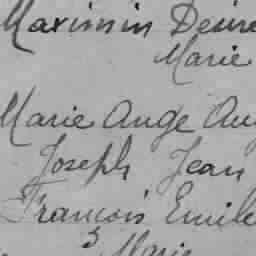 Maximin Désiré
Marie
Marie Ange Au
Joseph Jean
François Emile
Marie